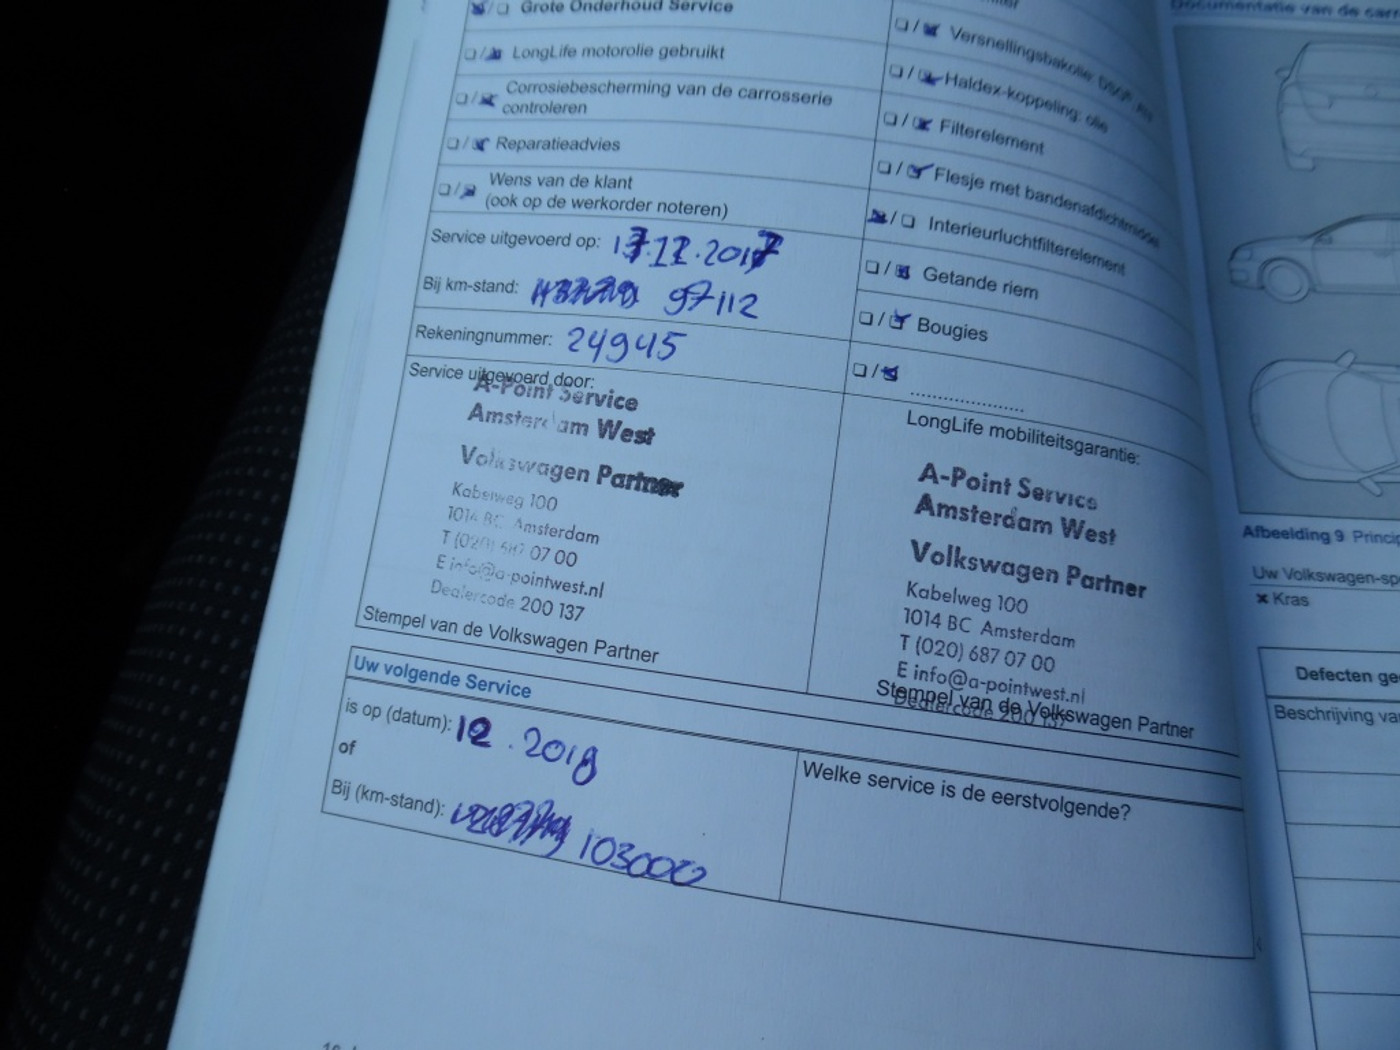 Grote Onderhoud Service
LongLife motorolie gebruikt
Corrosiebescherming van de carrosserie
controleren
Reparatieadvies
Wens van de klant
(ook op de werkorder noteren)
Service uitgevoerd op: 17.12.2017
Bij km-stand: 97112
Rekeningnummer: 24945
Service uitgevoerd door:
A-Point Service
Amsterdam West
Volkswagen Partner
Kabelweg 100
1014 BC Amsterdam
T (020) 687 07 00
E info@a-pointwest.nl
Dealercode 200 137
Stempel van de Volkswagen Partner
Versnellingsbakolie:
Haldex-koppeling: olie
Filterelement
Flesje met bandenafdichtmiddel
Interieurluchtfilterelement
Getande riem
Bougies
LongLife mobiliteitsgarantie:
A-Point Service
Amsterdam West
Volkswagen Partner
Kabelweg 100
1014 BC Amsterdam
T (020) 687 07 00
E info@a-pointwest.nl
Dealercode 200 137
Stempel van de Volkswagen Partner
Uw volgende Service
is op (datum): 12.2018
of
Bij (km-stand): 103000
Welke service is de eerstvolgende?
Documentatie van de
Afbeelding 9
Uw
× Kras
Defecten
Beschrijving